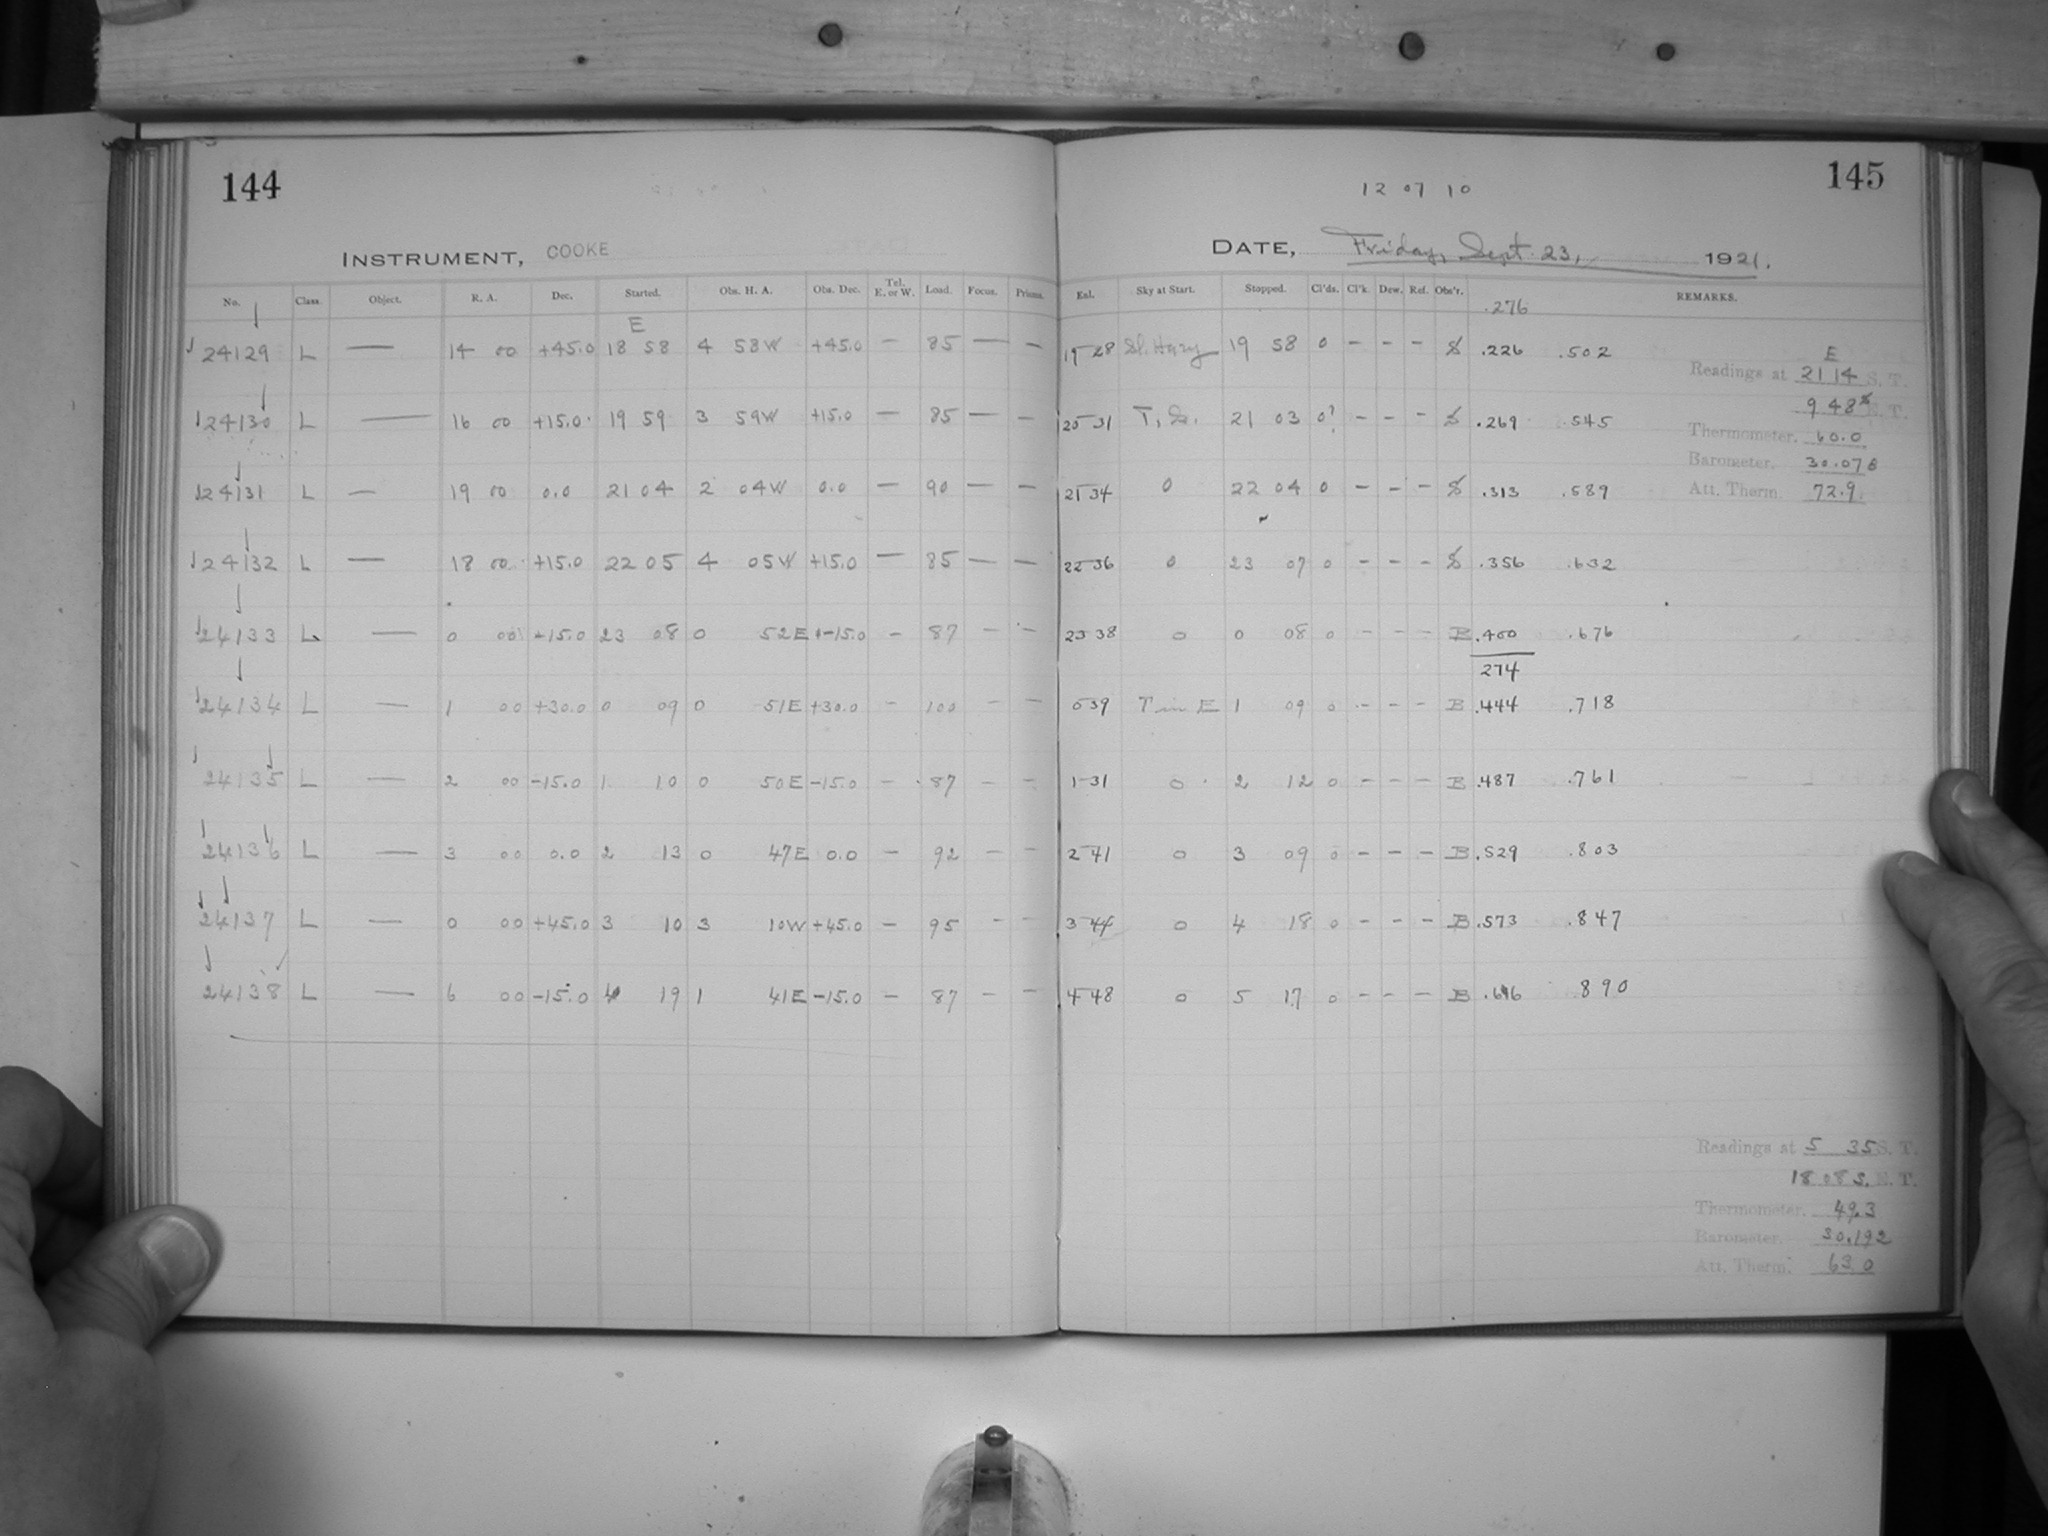 144
INSTRUMENT, COOKE
No. Class. Object. R. A. Dec. Started. Obs. H. A. Obs. Dec. Tel. E. or W. Load. Focus. Prisms.
E
24129 L — 14 00 +45.0 18 58 4 58W +45.0 — 85 — —
24130 L — 16 00 +15.0 19 59 3 59W +15.0 — 85 — —
24131 L — 19 00 0.0 21 04 2 04W 0.0 — 90 — —
24132 L — 18 00 +15.0 22 05 4 05W +15.0 — 85 — —
24133 L — 0 00 +15.0 23 08 0 52E +15.0 — 87 — —
24134 L — 1 00 +30.0 0 09 0 51E +30.0 — 100 — —
24135 L — 2 00 -15.0 1 10 0 50E -15.0 — 87 — —
24136 L — 3 00 0.0 2 13 0 47E 0.0 — 92 — —
24137 L — 0 00 +45.0 3 10 3 10W +45.0 — 95 - —
24138 L — 6 00 -15.0 4 19 1 41E -15.0 — 87 — —
145
12 07 10
DATE, Friday, Sept. 23, 1921.
Exl. Sky at Start. Stopped. Cl'ds. Cl'k. Dew. Ref. Obs'r. REMARKS.
.276
19 28 Sl. Hazy 19 58 0 - - - S .226 .502
20 31 T. S. 21 03 0? - - - S .269 .545
21 34 0 22 04 0 - - - S .313 .589
22 36 0 23 07 0 - - - S .356 .632
23 38 0 0 08 0 - - - B .400 .676
274
0 39 T in E 1 09 0 - - - B .444 .718
1 31 0 2 12 0 - - - B .487 .761
2 41 0 3 09 0 - - - B .529 .803
3 44 0 4 18 0 - - - B .573 .847
4 48 0 5 17 0 - - - B .890
E
Readings at 21 14 S. T.
9 48 S. T.
Thermometer. 60.0
Barometer. 30.078
Att. Therm. 72.9
Readings at 5 35 S. T.
18 08 S. T.
Thermometer. 49.3
Barometer. 30.192
Att. Therm. 63.0